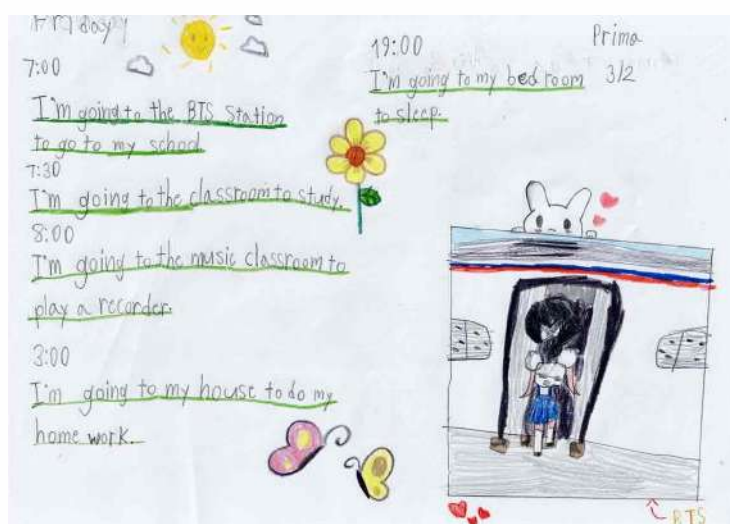 7:00
I'm going to the BTS Station
to go to my school
7:30
I'm going to the classroom to study.
8:00
I'm going to the music classroom to
play a recorder.
3:00
I'm going to my house to do my
home work.
19:00
I'm going to my bed room
to sleep.
Prima
3/2
BTS